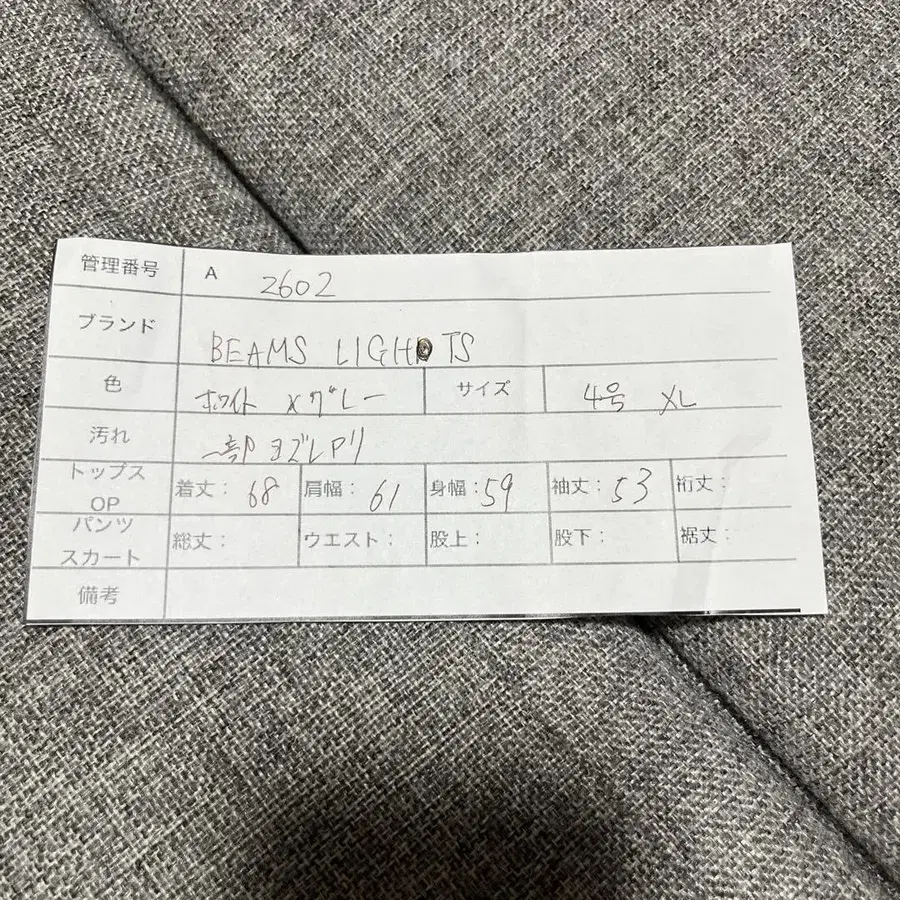 管理番号 A 2602
ブランド BEAMS LIGHTS
色 ホワイト×グレー サイズ 4号 XL
汚れ 一部ヨゴレアリ
トップス OP 着丈: 68 肩幅: 61 身幅: 59 袖丈: 53 裄丈:
パンツ スカート 総丈: ウエスト: 股上: 股下: 裾丈:
備考